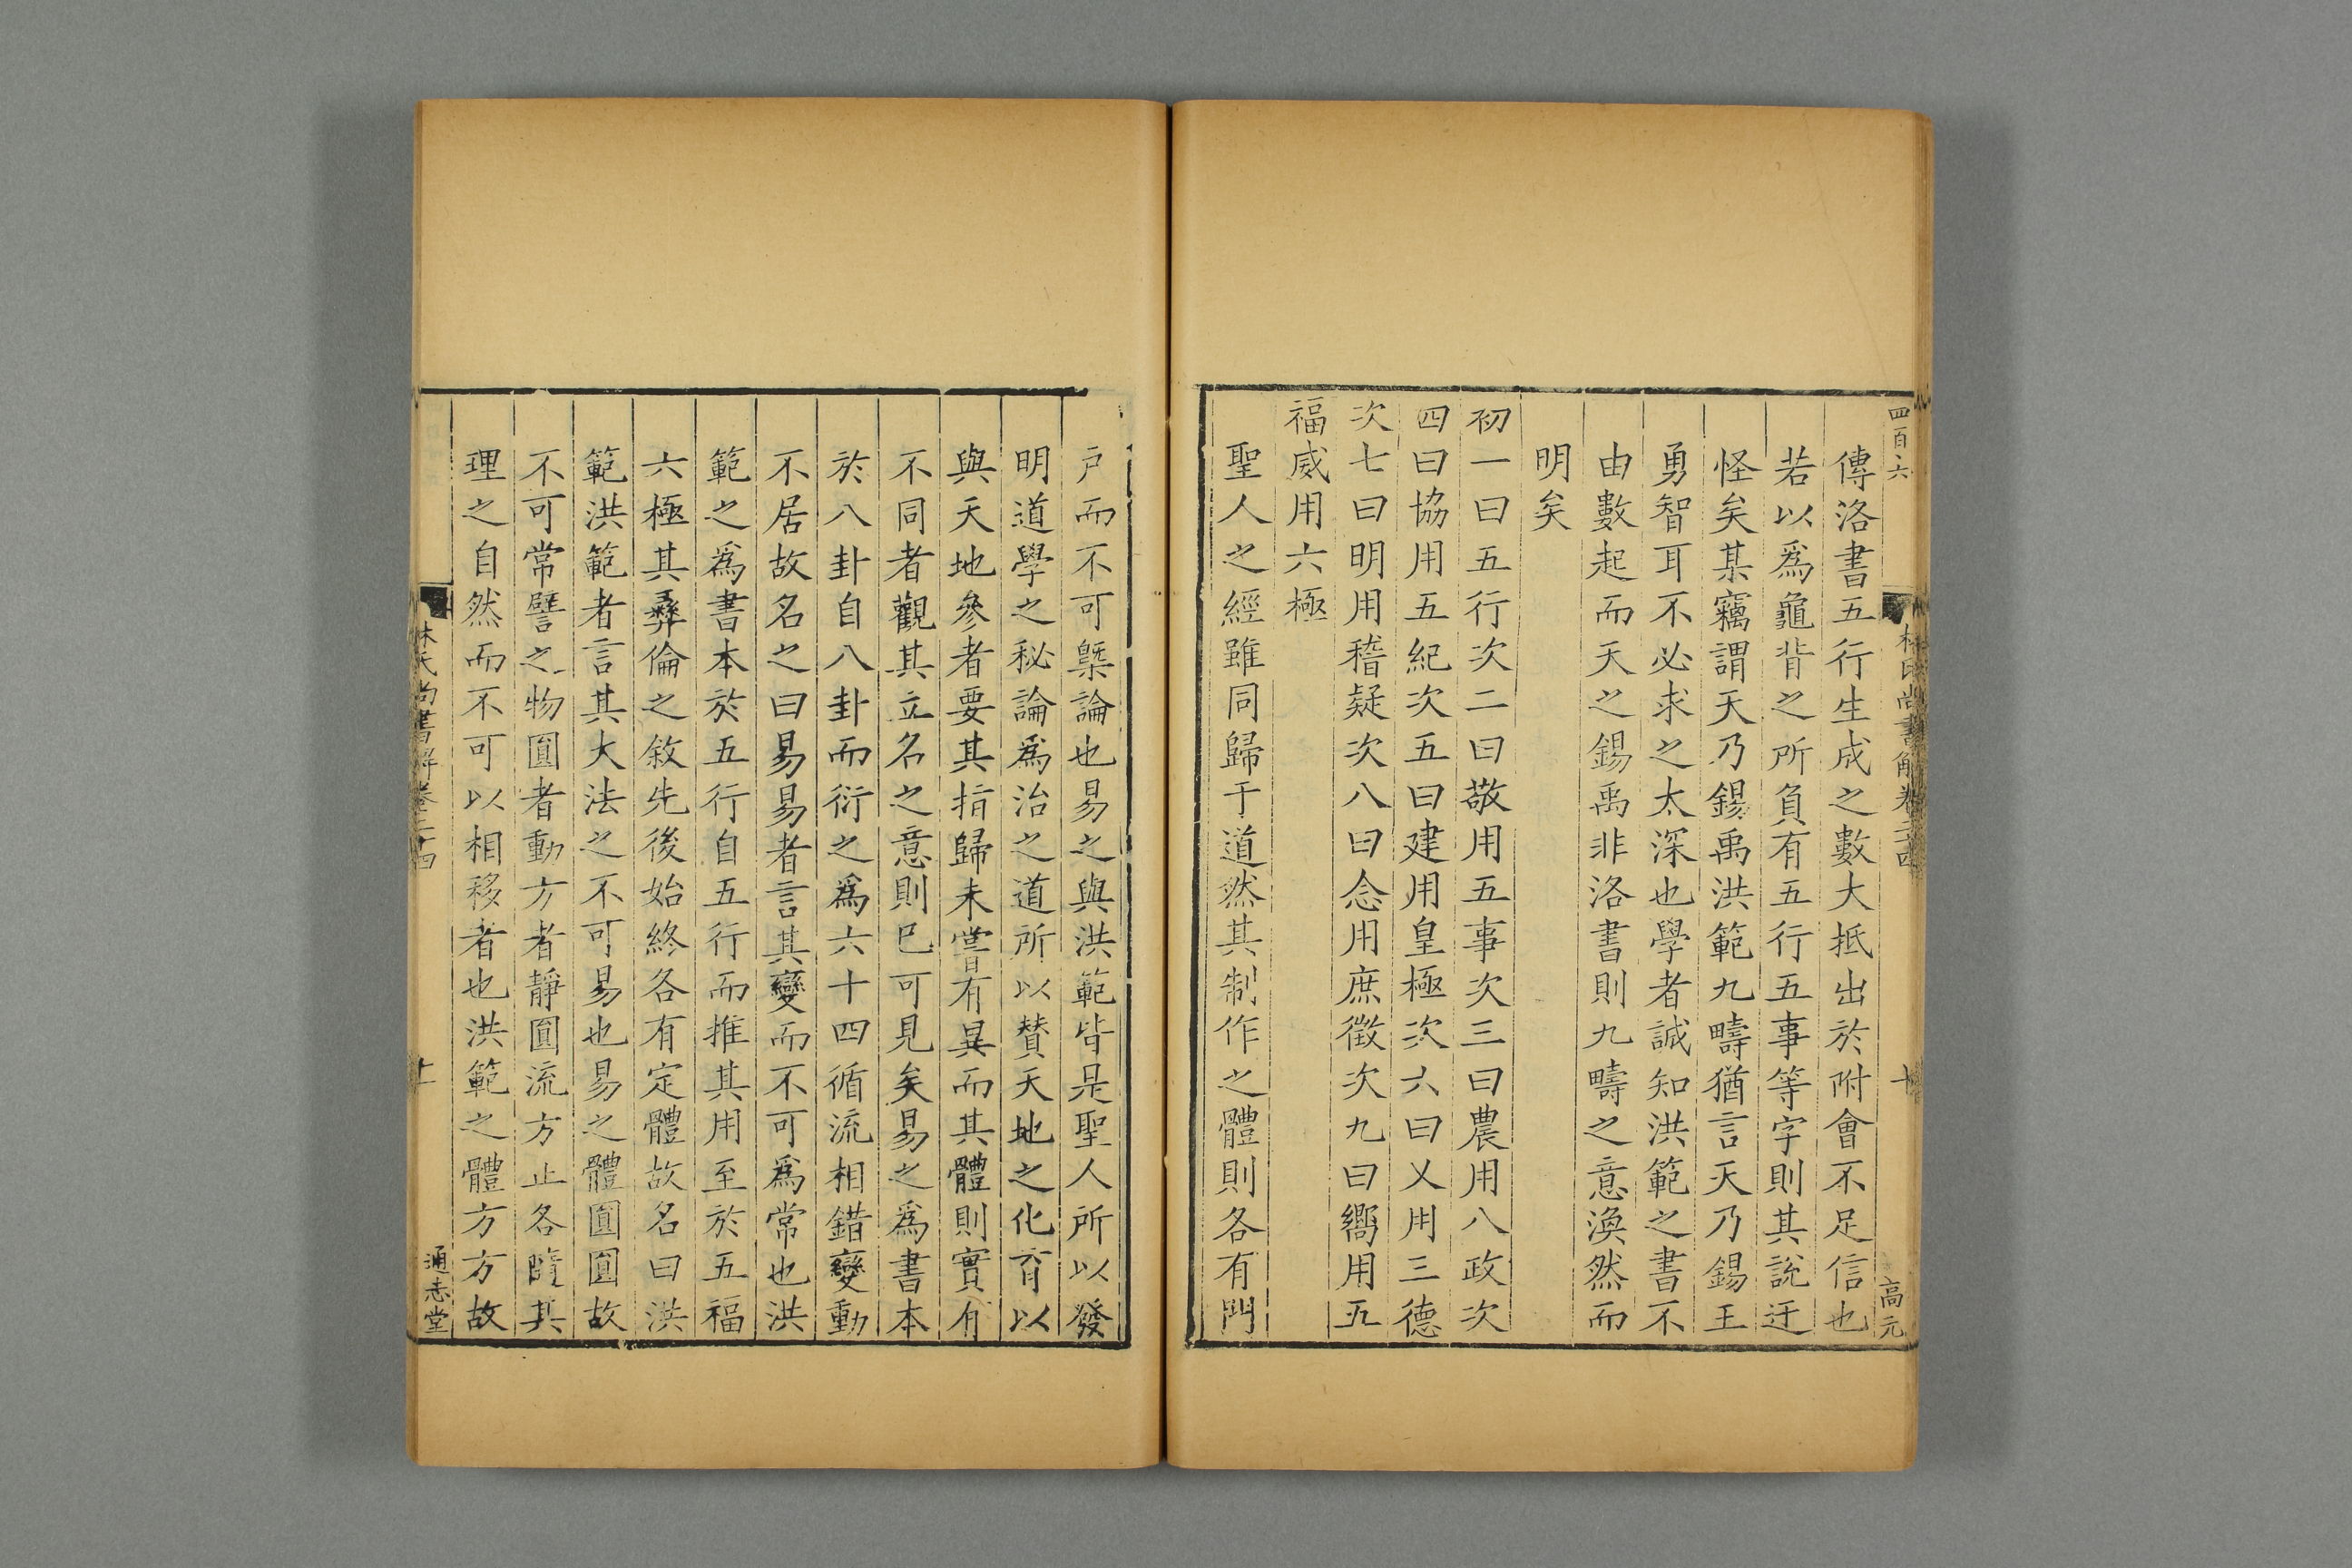 四百六
林氏尚書解卷二十四
十
高元
傳洛書五行生成之數大抵出於附會不足信也
若以爲龜背之所負有五行五事等字則其說迂
怪矣某竊謂天乃錫禹洪範九疇猶言天乃錫王
勇智耳不必求之太深也學者誠知洪範之書不
由數起而天之錫禹非洛書則九疇之意渙然而
明矣
初一曰五行次二曰敬用五事次三曰農用八政次
四曰協用五紀次五曰建用皇極次六曰乂用三德
次七曰明用稽疑次八曰念用庶徵次九曰嚮用五
福威用六極
聖人之經雖同歸于道然其制作之體則各有門
戶而不可槩論也易之與洪範皆是聖人所以發
明道學之秘論爲治之道所以賛天地之化育以
與天地參者要其指歸未嘗有異而其體則實有
不同者觀其立名之意則已可見矣易之爲書本
於八卦自八卦而衍之爲六十四循流相錯變動
不居故名之曰易易者言其變而不可爲常也洪
範之爲書本於五行自五行而推其用至於五福
六極其彝倫之敘先後始終各有定體故名曰洪
範洪範者言其大法之不可易也易之體圓圓故
不可常譬之物圓者動方者靜圓流方止各隨其
理之自然而不可以相移者也洪範之體方方故
林氏尚書解卷二十四
十一
通志堂